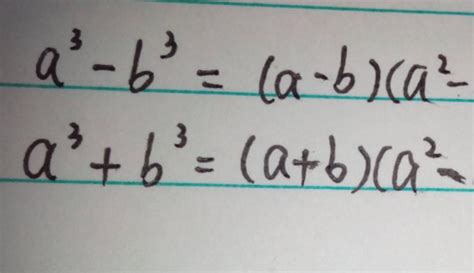 a³ - b³ = (a - b)(a² -
a³ + b³ = (a + b)(a² -